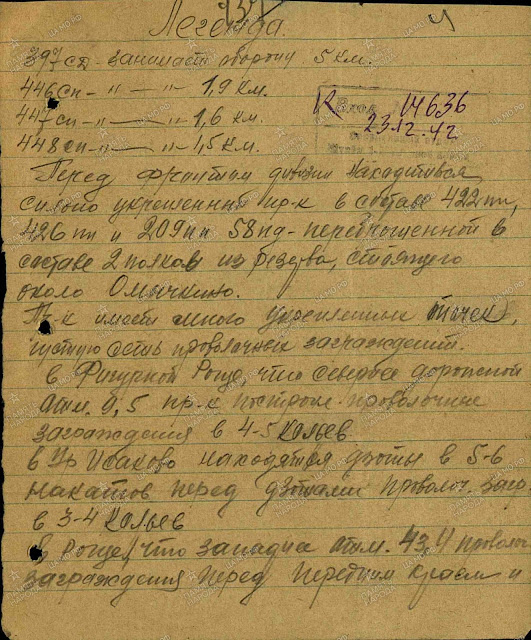 Легенда.
397 сд занимает оборону 5 км.
446 сп – " – " – 1,9 км.
447 сп – " – " – 1,6 км.
448 сп – " – " – 1,5 км.
Вход. 14636
23.12.42
Перед фронтом дивизии находится
сильно укрепленный пр-к в составе 422 пп,
426 пп и 209 пп 58 пд - переброшенной в
составе 2 полков из резерва, стоящего
около Омычкино.
Пр-к имеет много укрепленных точек,
густую сеть проволочных заграждений.
в Фигурной Роще что севернее
отм. 0,5 пр-к построил проволочные
заграждения в 4-5 кольев
в Ур Исаково находятся дзоты в 5-6
накатов перед дзотами проволоч. загр.
в 3-4 кольев
в роще, что западнее отм. 43,4 проволоч
заграждения перед передним краем и